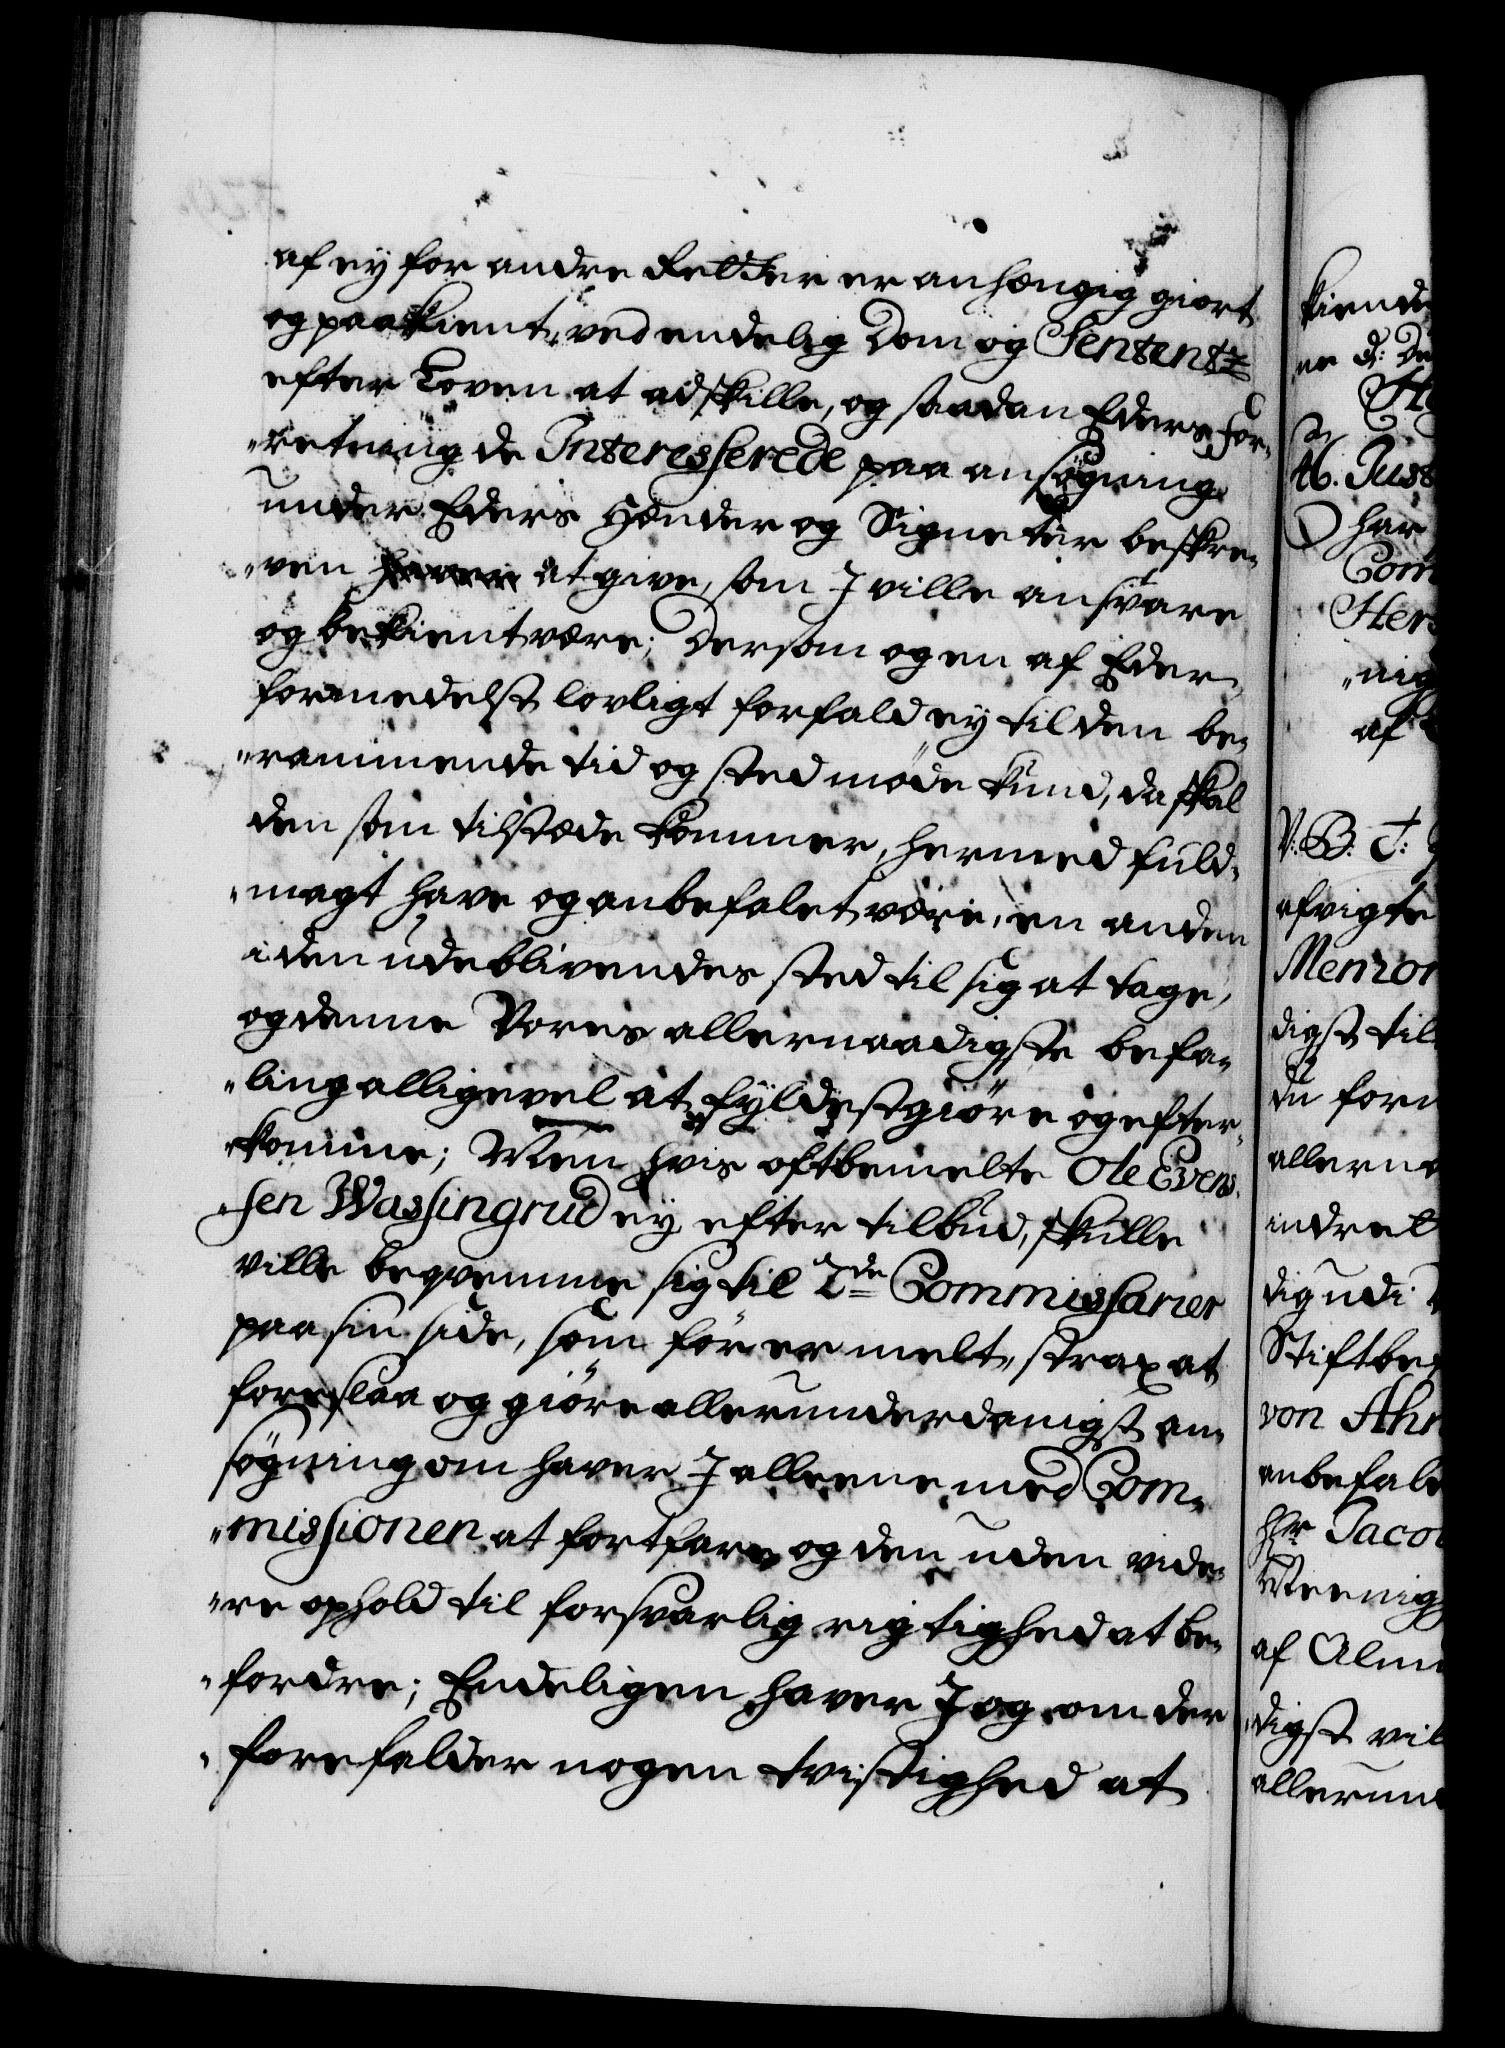 af ey for andre Retter er anhængig giort
og paakient, ved endelig Dom og Sententz
efter Loven at adskille, og saadan Eders for¬
retning de Interesserede paa ansøgning
under Eders Hænder og Signeter beskre¬
ven at give, som I ville ansvare
og bekient være; Dersom og en af Eder
formedelst lovligt forfald ey til den be¬
rammende tid og sted møde kund, da skal
den som tilstæde kommer, hermed fuld¬
magt have og anbefalet være, en anden
i den udeblivendes sted til sig at tage,
og denne Vores allernaadigste befa¬
ling alligevel at fyldestgiøre og efter¬
komme; Men hvis oftbemelte Ole Evens¬
sen Wassingrud ey efter tilbud, skulle
ville beqvemme sig til 2de Commissarier
paa sin side, som før er melt, strax at
foreslaa og giøre allerunderdanigst an¬
søgning om haver I alleene med Com¬
missionen at fortfare og den uden vide¬
re ophold til forsvarlig rigtighed at be¬
fordre; Endeligen haver I og om der
forefalder nogen tvistighed at
kiende
Just
har
Com
Hers
nig
af
V. B. T:
afvigte
Memor
digst til
du forn
allerna
indret
dig udi
Stiftbe
von Ahn
anbefale
Hr Jacob
Meenig
af Alm
digst vil
allerund